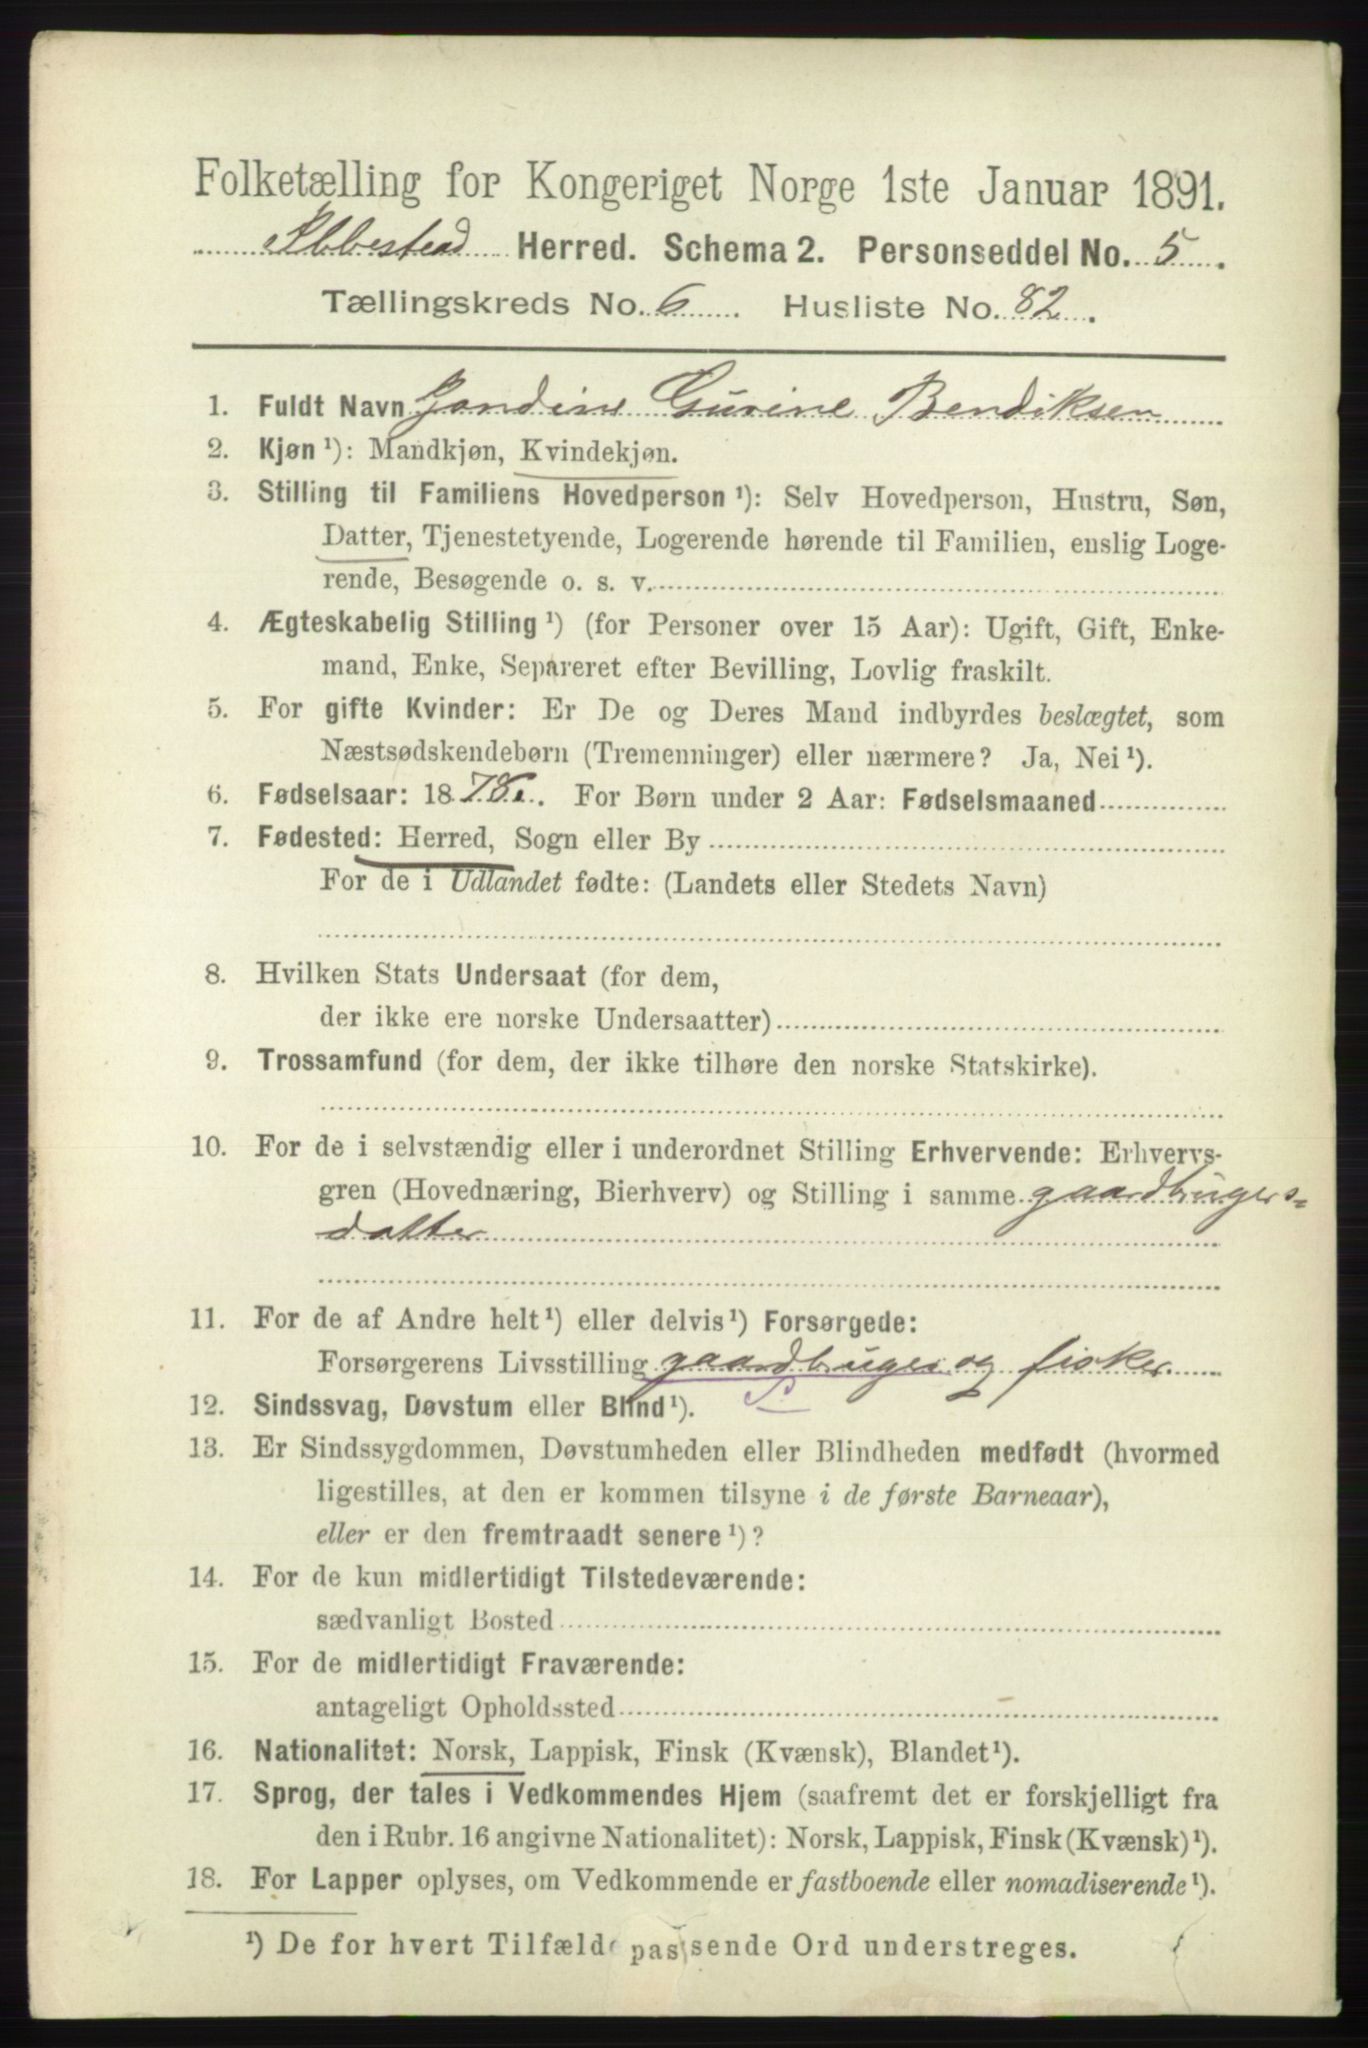 Folketælling for Kongeriget Norge 1ste Januar 1891.
Ibbestad Herred. Schema 2. Personseddel No. 5.
Tællingskreds No. 6. Husliste No. 82.
1. Fuldt Navn Jondine Gurine Bendiksen
2. Kjøn ¹): Mandkjøn, Kvindekjøn.
3. Stilling til Familiens Hovedperson ¹): Selv Hovedperson, Hustru, Søn,
Datter, Tjenestetyende, Logerende hørende til Familien, enslig Loge-
rende, Besøgende o. s. v.
4. Ægteskabelig Stilling ¹) (for Personer over 15 Aar): Ugift, Gift, Enke-
mand, Enke, Separeret efter Bevilling, Lovlig fraskilt.
5. For gifte Kvinder: Er De og Deres Mand indbyrdes beslægtet, som
Næstsødskendebørn (Tremenninger) eller nærmere? Ja, Nei ¹).
6. Fødselsaar: 1878. For Børn under 2 Aar: Fødselsmaaned
7. Fødested: Herred, Sogn eller By
For de i Udlandet fødte: (Landets eller Stedets Navn)
8. Hvilken Stats Undersaat (for dem,
der ikke ere norske Undersaatter)
9. Trossamfund (for dem, der ikke tilhøre den norske Statskirke).
10. For de i selvstændig eller i underordnet Stilling Erhvervende: Erhvervs-
gren (Hovednæring, Bierhverv) og Stilling i samme gaardbrugers-
datter
11. For de af Andre helt ¹) eller delvis ¹) Forsørgede:
Forsørgerens Livsstilling gaardbruger og fisker
12. Sindssvag, Døvstum eller Blind ¹).
13. Er Sindssygdommen, Døvstumheden eller Blindheden medfødt (hvormed
ligestilles, at den er kommen tilsyne i de første Barneaar),
eller er den fremtraadt senere ¹)?
14. For de kun midlertidigt Tilstedeværende:
sædvanligt Bosted
15. For de midlertidigt Fraværende:
antageligt Opholdssted
16. Nationalitet: Norsk, Lappisk, Finsk (Kvænsk), Blandet ¹).
17. Sprog, der tales i Vedkommendes Hjem (saafremt det er forskjelligt fra
den i Rubr. 16 angivne Nationalitet): Norsk, Lappisk, Finsk (Kvænsk) ¹).
18. For Lapper oplyses, om Vedkommende er fastboende eller nomadiserende ¹).
¹) De for hvert Tilfælde passende Ord understreges.